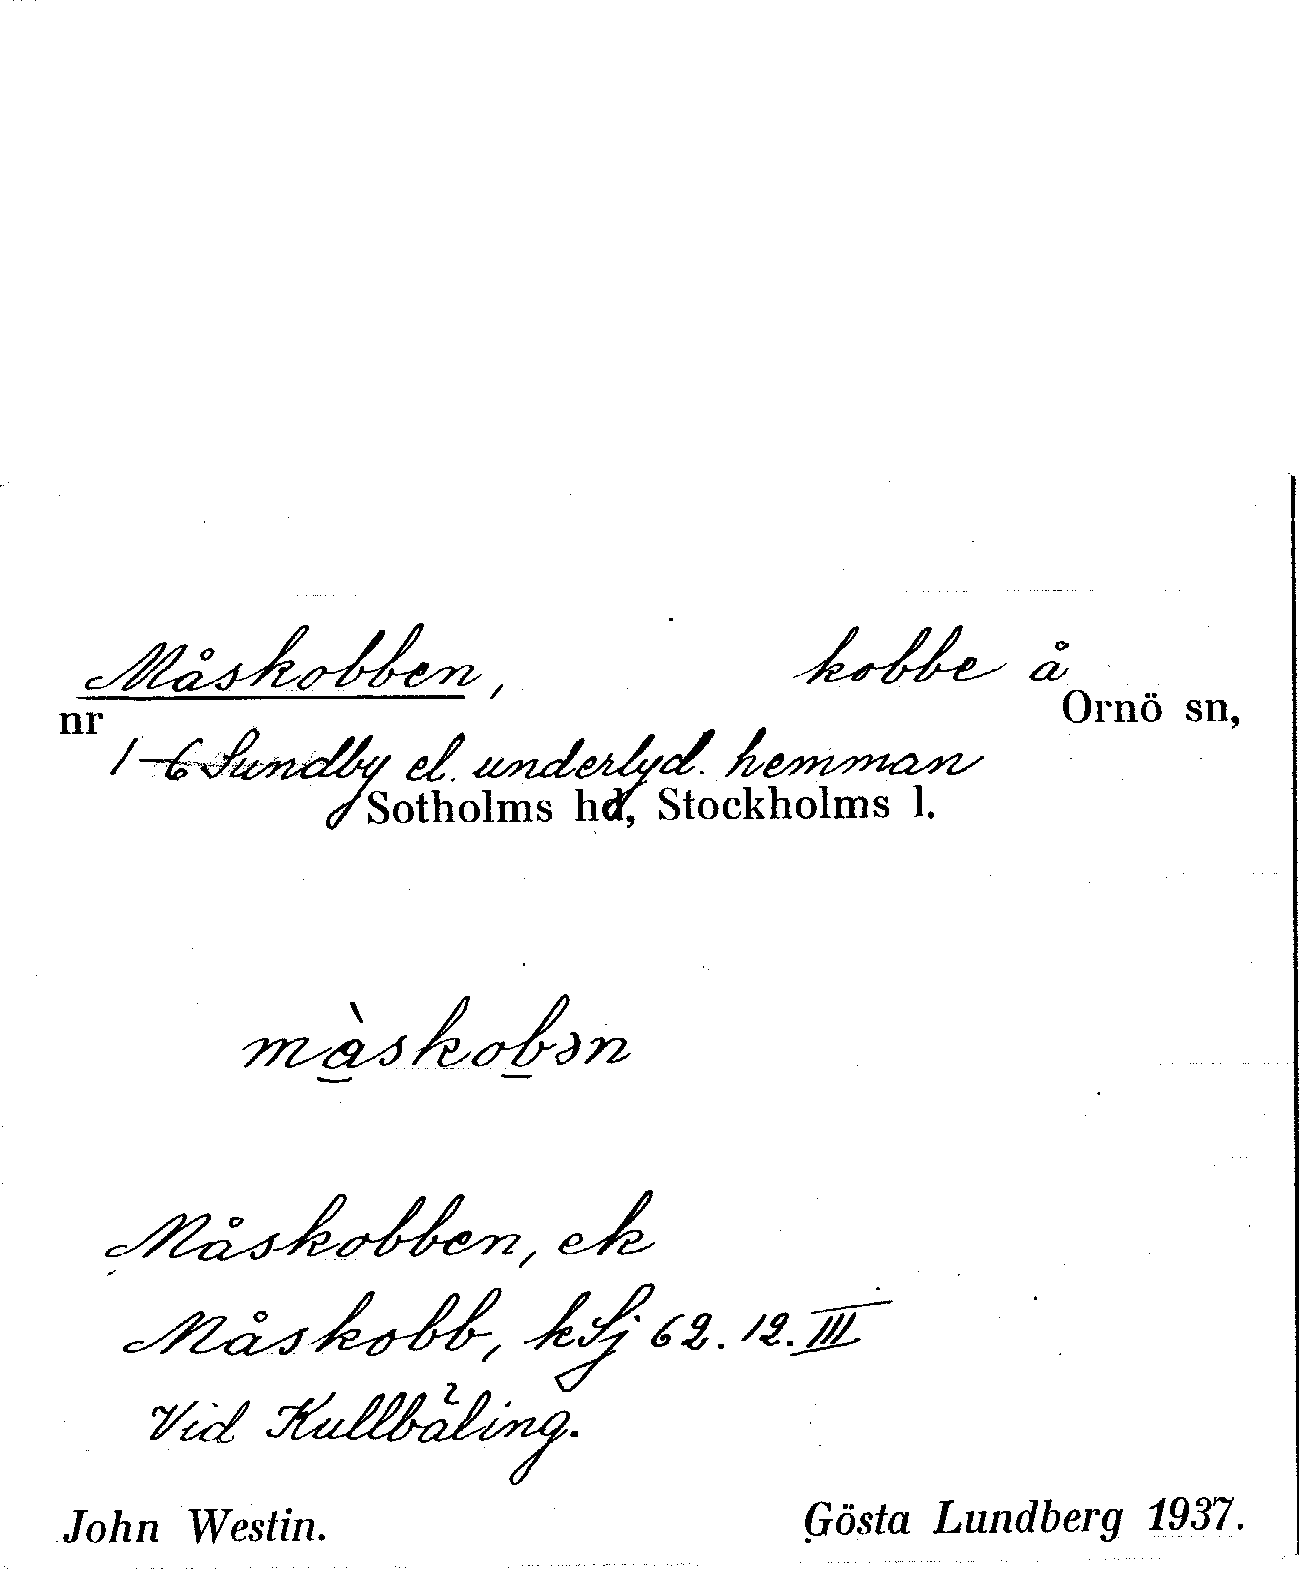 Måskobben, kobbe å
nr Ornö sn,
1–6 Sundby el. underlyd. hemman
Sotholms hd, Stockholms l.
màskobən
Måskobben, ek
Måskobb, kSj 62.12.III
Vid Kullbäling.
John Westin. Gösta Lundberg 1937.